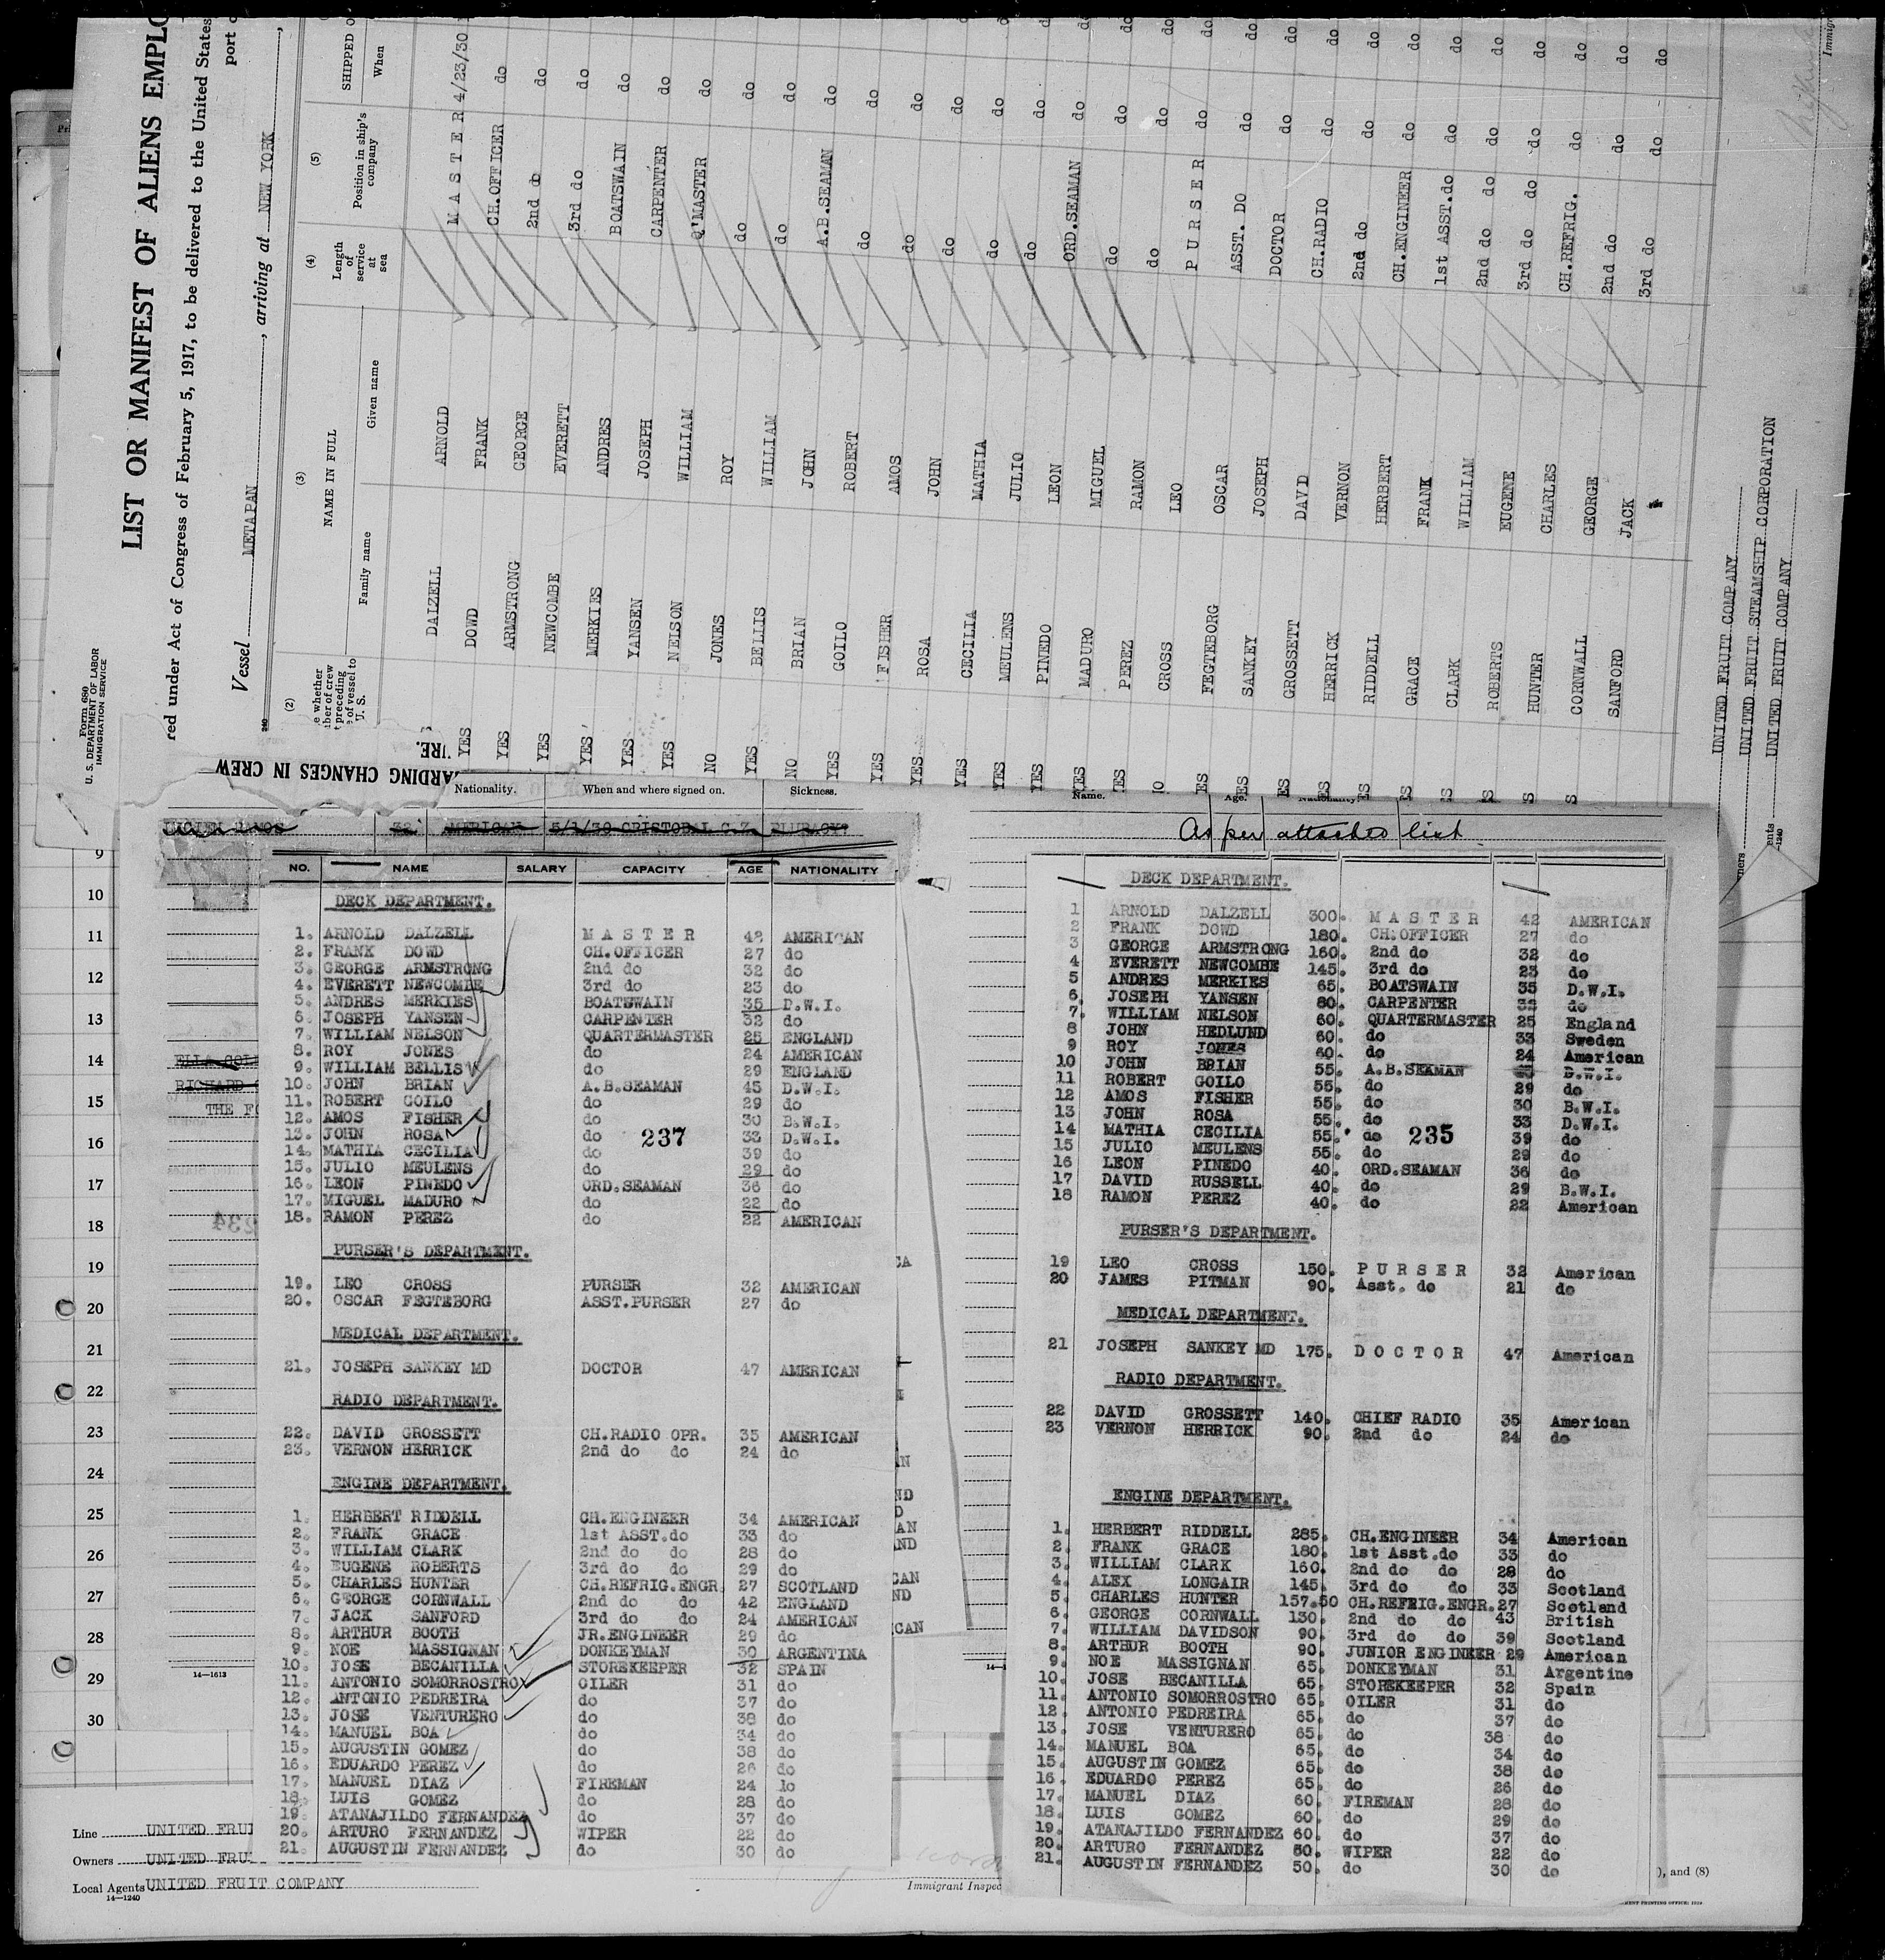 Form 680
U. S. DEPARTMENT OF LABOR
IMMIGRATION SERVICE
LIST OR MANIFEST OF ALIENS EMPLO
red under Act of Congress of February 5, 1917, to be delivered to the United States
port o
Vessel METAPAN, arriving at NEW YORK,
(2) (3) (4) (5)
NAME IN FULL
Family name Given name
Length of service at sea
Position in ship's company
SHIPPED O
When
YES DALZELL ARNOLD M A S T E R 4/23/30
YES DOWD FRANK CH.OFFICER do
YES ARMSTRONG GEORGE 2nd do do
YES NEWCOMBE EVERETT 3rd do do
YES MERKIES ANDRES BOATSWAIN do
YES YANSEN JOSEPH CARPENTER do
NO NELSON WILLIAM Q'MASTER do
YES JONES ROY do do
NO BELLIS WILLIAM do do
YES BRIAN JOHN A.B.SEAMAN do
YES GOILO ROBERT do do
YES FISHER AMOS do do
YES ROSA JOHN do do
YES CECILIA MATHIA do do
YES MEULENS JULIO do do
YES PINEDO LEON ORD.SEAMAN do
MADURO MIGUEL do do
PEREZ RAMON do do
CROSS LEO P U R S E R do
FEGTEBORG OSCAR ASST. DO do
SANKEY JOSEPH DOCTOR do
GROSSETT DAVID CH.RADIO do
HERRICK VERNON 2nd do do
RIDDELL HERBERT CH.ENGINEER do
GRACE FRANK 1st ASST.do do
CLARK WILLIAM 2nd do do
ROBERTS EUGENE 3rd do do
HUNTER CHARLES CH.REFRIG. do
CORNWALL GEORGE 2nd do do
SANFORD JACK 3rd do do
UNITED FRUIT COMPANY
UNITED FRUIT STEAMSHIP CORPORATION
UNITED FRUIT COMPANY
ARDING CHANGES IN CREW
Nationality. When and where signed on. Sickness.
AMERICAN 5/1/30 CRISTOBAL C.Z.
NO. NAME SALARY CAPACITY AGE NATIONALITY
DECK DEPARTMENT.
1. ARNOLD DALZELL M A S T E R 42 AMERICAN
2. FRANK DOWD CH.OFFICER 27 do
3. GEORGE ARMSTRONG 2nd do 32 do
4. EVERETT NEWCOMBE 3rd do 23 do
5. ANDRES MERKIES BOATSWAIN 35 D.W.I.
6. JOSEPH YANSEN CARPENTER 32 do
7. WILLIAM NELSON QUARTERMASTER 25 ENGLAND
8. ROY JONES do 24 AMERICAN
9. WILLIAM BELLIS do 29 ENGLAND
10. JOHN BRIAN A.B.SEAMAN 45 D.W.I.
11. ROBERT GOILO do 29 do
12. AMOS FISHER do 30 B.W.I.
13. JOHN ROSA do 33 D.W.I.
237
14. MATHIA CECILIA do 39 do
15. JULIO MEULENS do 29 do
16. LEON PINEDO ORD.SEAMAN 36 do
17. MIGUEL MADURO do 22 do
18. RAMON PEREZ do 22 AMERICAN
PURSER'S DEPARTMENT.
19. LEO CROSS PURSER 32 AMERICAN
20. OSCAR FEGTEBORG ASST.PURSER 27 do
MEDICAL DEPARTMENT.
21. JOSEPH SANKEY MD DOCTOR 47 AMERICAN
RADIO DEPARTMENT.
22. DAVID GROSSETT CH.RADIO OPR. 35 AMERICAN
23. VERNON HERRICK 2nd do do 24 do
ENGINE DEPARTMENT.
1. HERBERT RIDDELL CH.ENGINEER 34 AMERICAN
2. FRANK GRACE 1st ASST.do 33 do
3. WILLIAM CLARK 2nd do do 28 do
4. EUGENE ROBERTS 3rd do do 29 do
5. CHARLES HUNTER CH.REFRIG.ENGR. 27 SCOTLAND
6. GEORGE CORNWALL 2nd do do 42 ENGLAND
7. JACK SANFORD 3rd do do 24 AMERICAN
8. ARTHUR BOOTH JR.ENGINEER 29 do
9. NOE MASSIGNAN DONKEYMAN 30 ARGENTINA
10. JOSE BECANILLA STOREKEEPER 32 SPAIN
11. ANTONIO SOMORROSTRO OILER 31 do
12. ANTONIO PEDREIRA do 37 do
13. JOSE VENTURERO do 38 do
14. MANUEL BOA do 34 do
15. AUGUSTIN GOMEZ do 38 do
16. EDUARDO PEREZ do 26 do
17. MANUEL DIAZ FIREMAN 24 do
18. LUIS GOMEZ do 28 do
19. ATANAJILDO FERNANDEZ do 37 do
20. ARTURO FERNANDEZ WIPER 22 do
21. AUGUSTIN FERNANDEZ do 30 do
Name. Age. Nationality.
As per attached list
DECK DEPARTMENT.
1 ARNOLD DALZELL 300. M A S T E R 42 AMERICAN
2 FRANK DOWD 180. CH.OFFICER 27 do
3 GEORGE ARMSTRONG 160. 2nd do 32 do
4 EVERETT NEWCOMBE 145. 3rd do 23 do
5 ANDRES MERKIES 65. BOATSWAIN 35 D.W.I.
6. JOSEPH YANSEN 80. CARPENTER 32 do
7. WILLIAM NELSON 60. QUARTERMASTER 25 England
8 JOHN HEDLUND 60. do 33 Sweden
9 ROY JONES 60. do 24 American
10 JOHN BRIAN 55. A.B.SEAMAN 45 D.W.I.
11 ROBERT GOILO 55. do 29 do
12 AMOS FISHER 55. do 30 B.W.I.
13 JOHN ROSA 55. do 33 D.W.I.
14 MATHIA CECILIA 55. do 39 do
235
15 JULIO MEULENS 55. do 29 do
16 LEON PINEDO 40. ORD.SEAMAN 36 do
17 DAVID RUSSELL 40. do 29 B.W.I.
18 RAMON PEREZ 40. do 22 American
PURSER'S DEPARTMENT.
19 LEO CROSS 150. P U R S E R 32 American
20 JAMES PITMAN 90. Asst. do 21 do
MEDICAL DEPARTMENT.
21 JOSEPH SANKEY MD 175. D O C T O R 47 American
RADIO DEPARTMENT.
22 DAVID GROSSETT 140. CHIEF RADIO 35 American
23 VERNON HERRICK 90. 2nd do 24 do
ENGINE DEPARTMENT.
1. HERBERT RIDDELL 285. CH.ENGINEER 34 American
2. FRANK GRACE 180. 1st Asst.do 33 do
3. WILLIAM CLARK 160. 2nd do do 28 do
4. ALEX LONGAIR 145. 3rd do do 33 Scotland
5. CHARLES HUNTER 157.50 CH.REFRIG.ENGR. 27 Scotland
6. GEORGE CORNWALL 130. 2nd do do 43 British
7. WILLIAM DAVIDSON 90. 3rd do do 39 Scotland
8. ARTHUR BOOTH 90. JUNIOR ENGINEER 29 American
9. NOE MASSIGNAN 65. DONKEYMAN 31 Argentine
10. JOSE BECANILLA 65. STOREKEEPER 32 Spain
11. ANTONIO SOMORROSTRO 65. OILER 31 do
12. ANTONIO PEDREIRA 65. do 37 do
13. JOSE VENTURERO 65. do 38 do
14. MANUEL BOA 65. do 34 do
15. AUGUSTIN GOMEZ 65. do 38 do
16. EDUARDO PEREZ 65. do 26 do
17. MANUEL DIAZ 60. FIREMAN 28 do
18. LUIS GOMEZ 60. do 29 do
19. ATANAJILDO FERNANDEZ 60. do 37 do
20. ARTURO FERNANDEZ 50. WIPER 22 do
21. AUGUSTIN FERNANDEZ 50. do 30 do
9
10
11
12
13
14
15
16
17
18
19
20
21
22
23
24
25
26
27
28
29
30
14—1613
Line UNITED FRUI
Owners UNITED FRU
Local Agents UNITED FRUIT COMPANY
14—1240
Immigrant Inspec
), and (8)